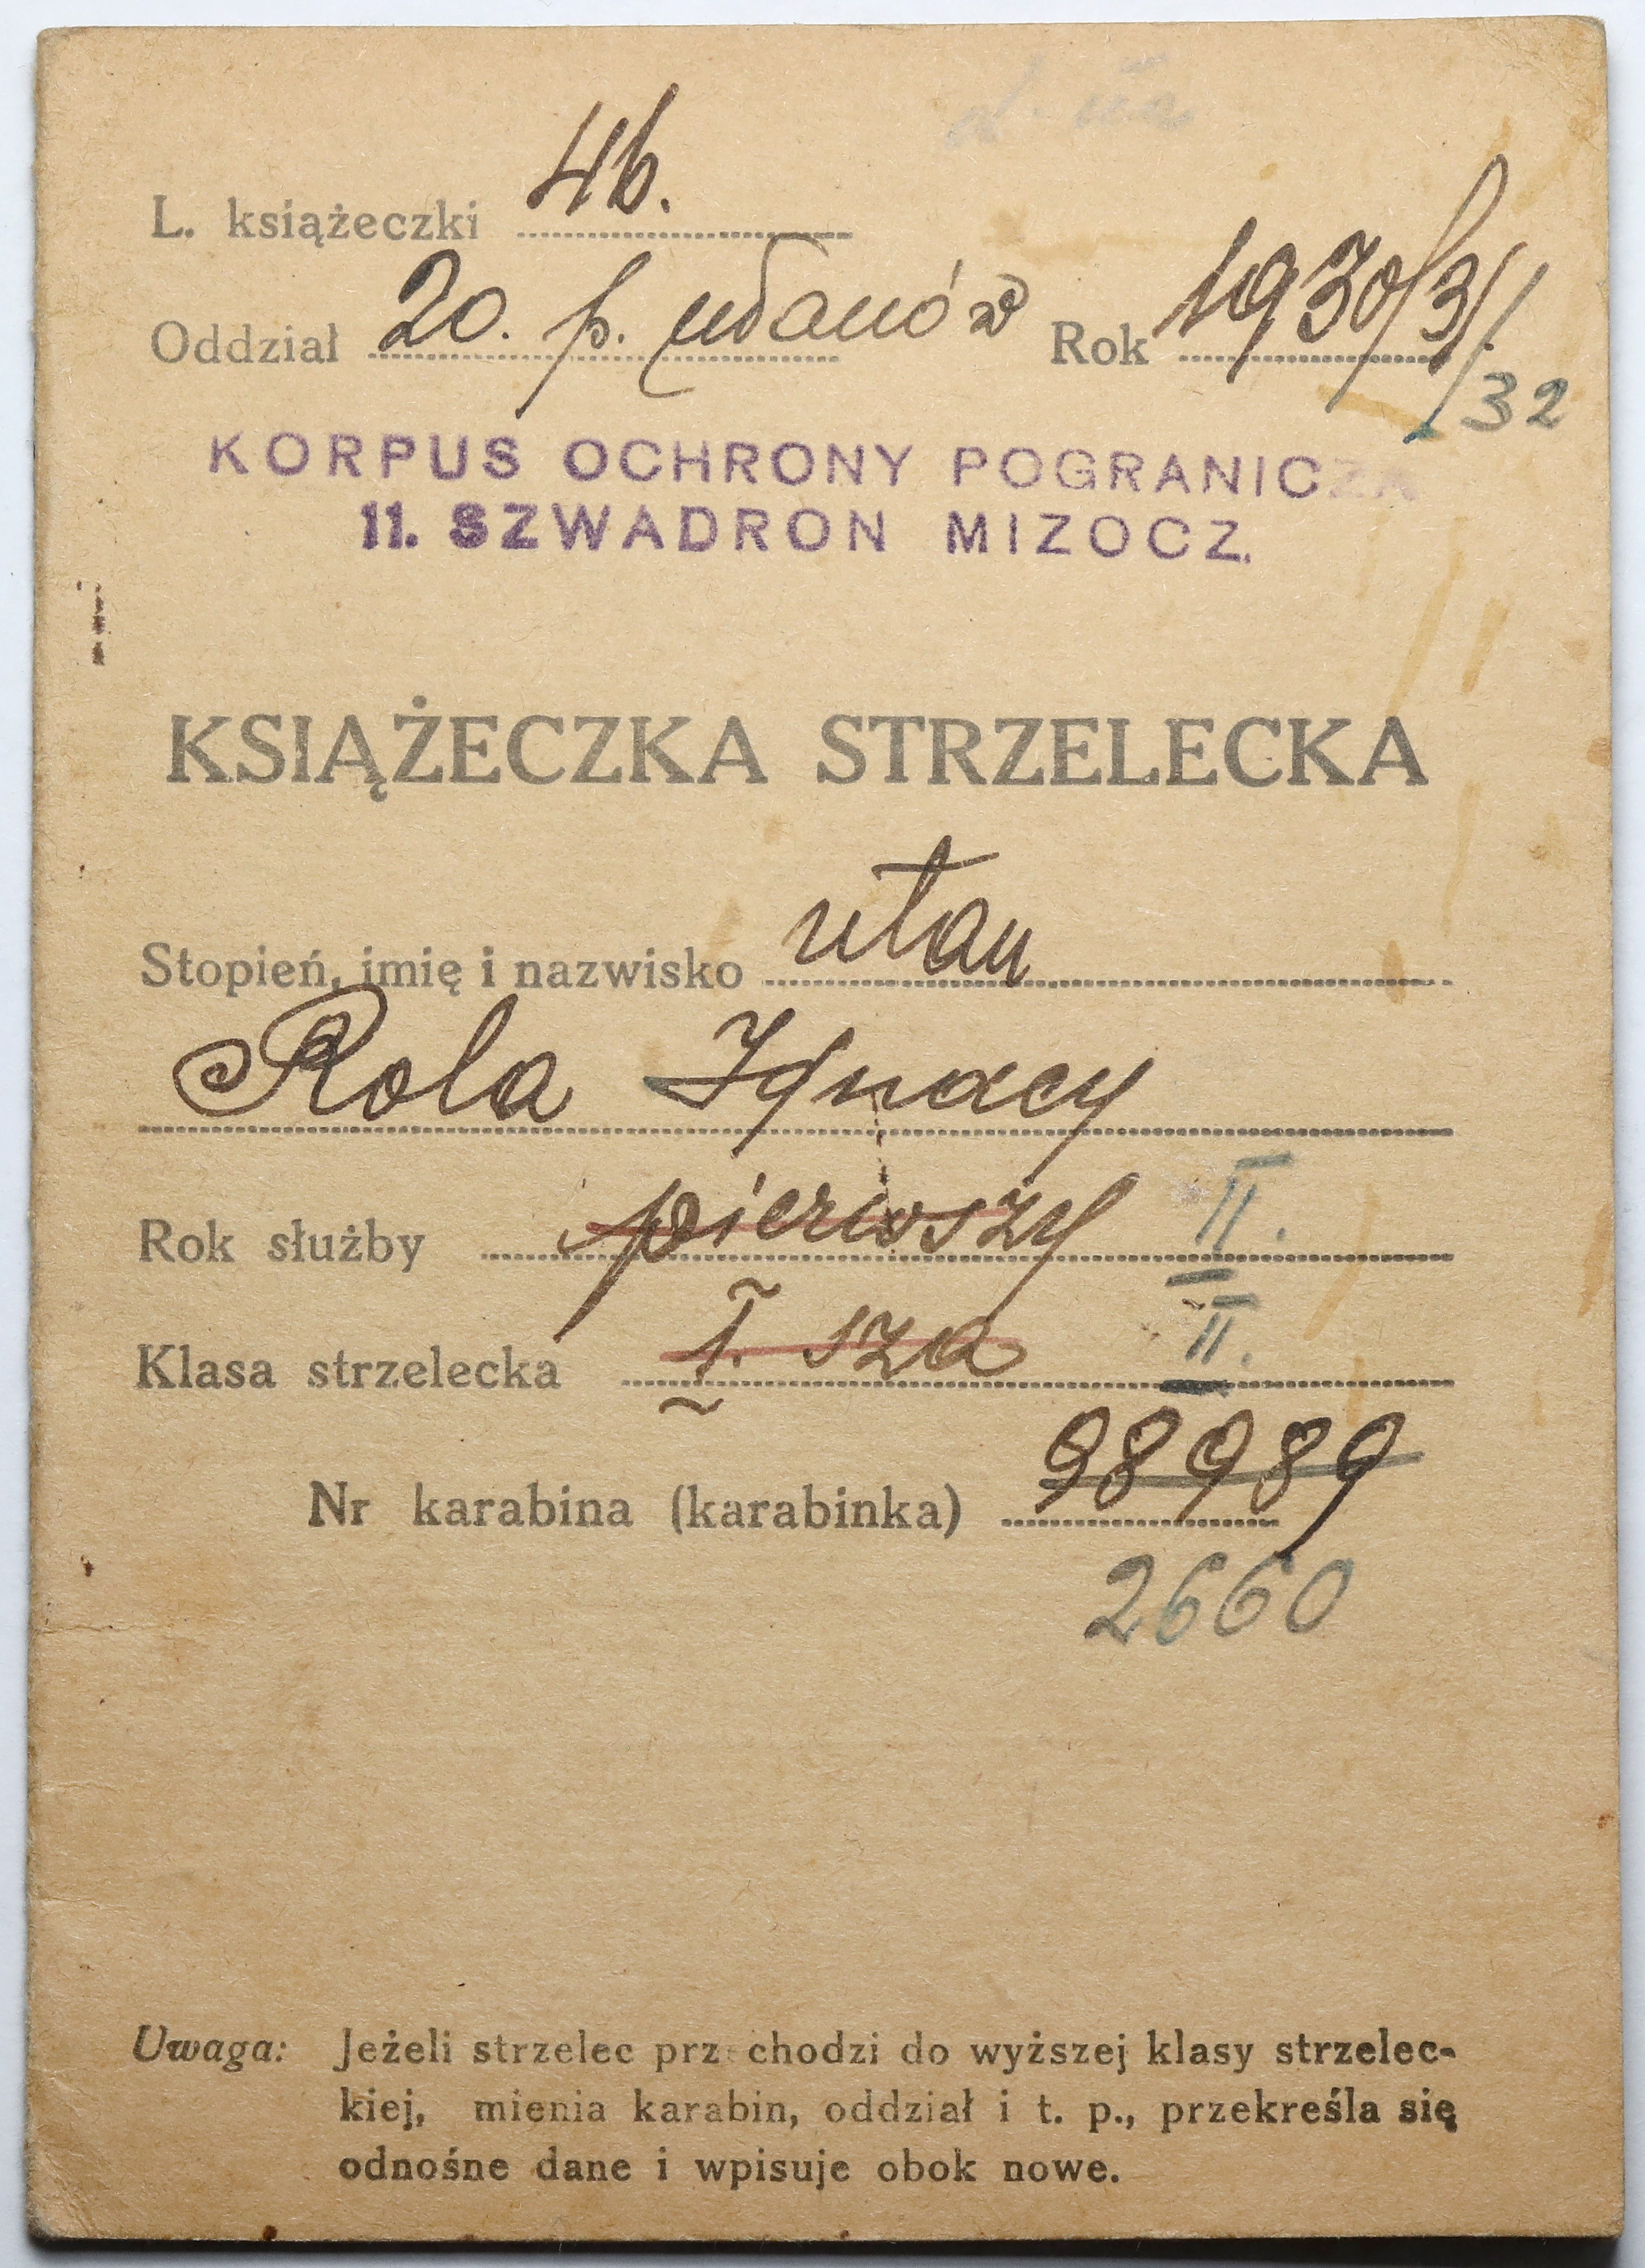 L. książeczki 46.
Oddział 20. p. ułanów Rok 1930/31/32
KORPUS OCHRONY POGRANICZA
11. SZWADRON MIZOCZ.
KSIĄŻECZKA STRZELECKA
Stopień, imię i nazwisko ułan
Rola Ignacy
Rok służby pierwszy II.
Klasa strzelecka I. sza II.
Nr karabina (karabinka) 98989
2660
Uwaga: Jeżeli strzelec przechodzi do wyższej klasy strzelec-
kiej, mienia karabin, oddział i t. p., przekreśla się
odnośne dane i wpisuje obok nowe.